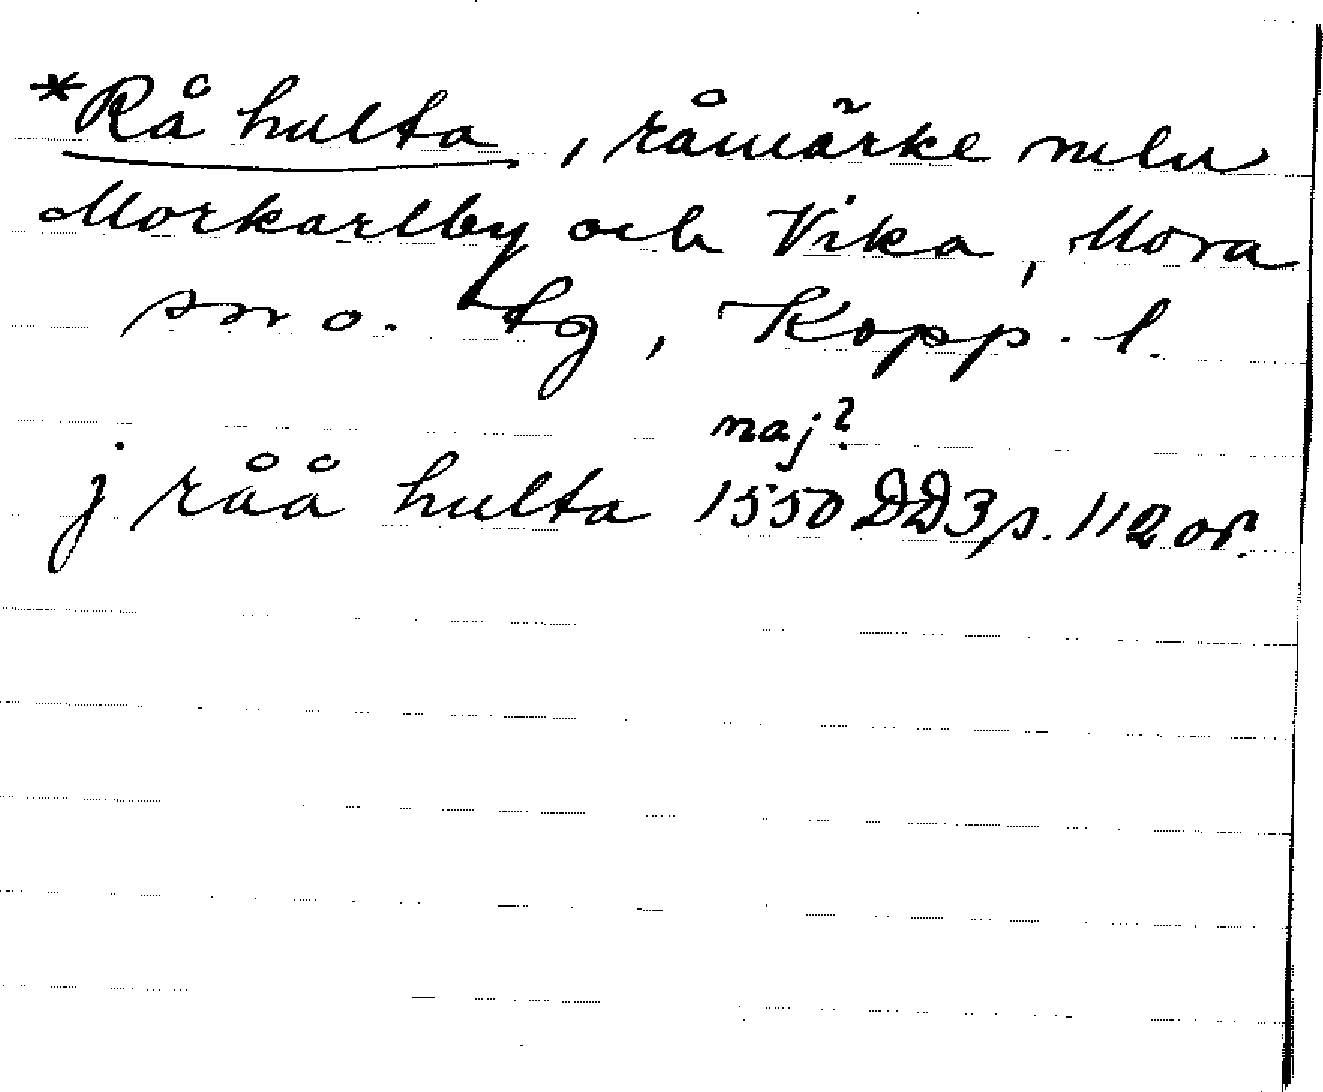 *Rå hulta, råmärke mln
Morkarlby och Vika, Mora
sn o. tg, Kopp. l.
naj?
j råå hulta 1550 DD3 s. 112 or.